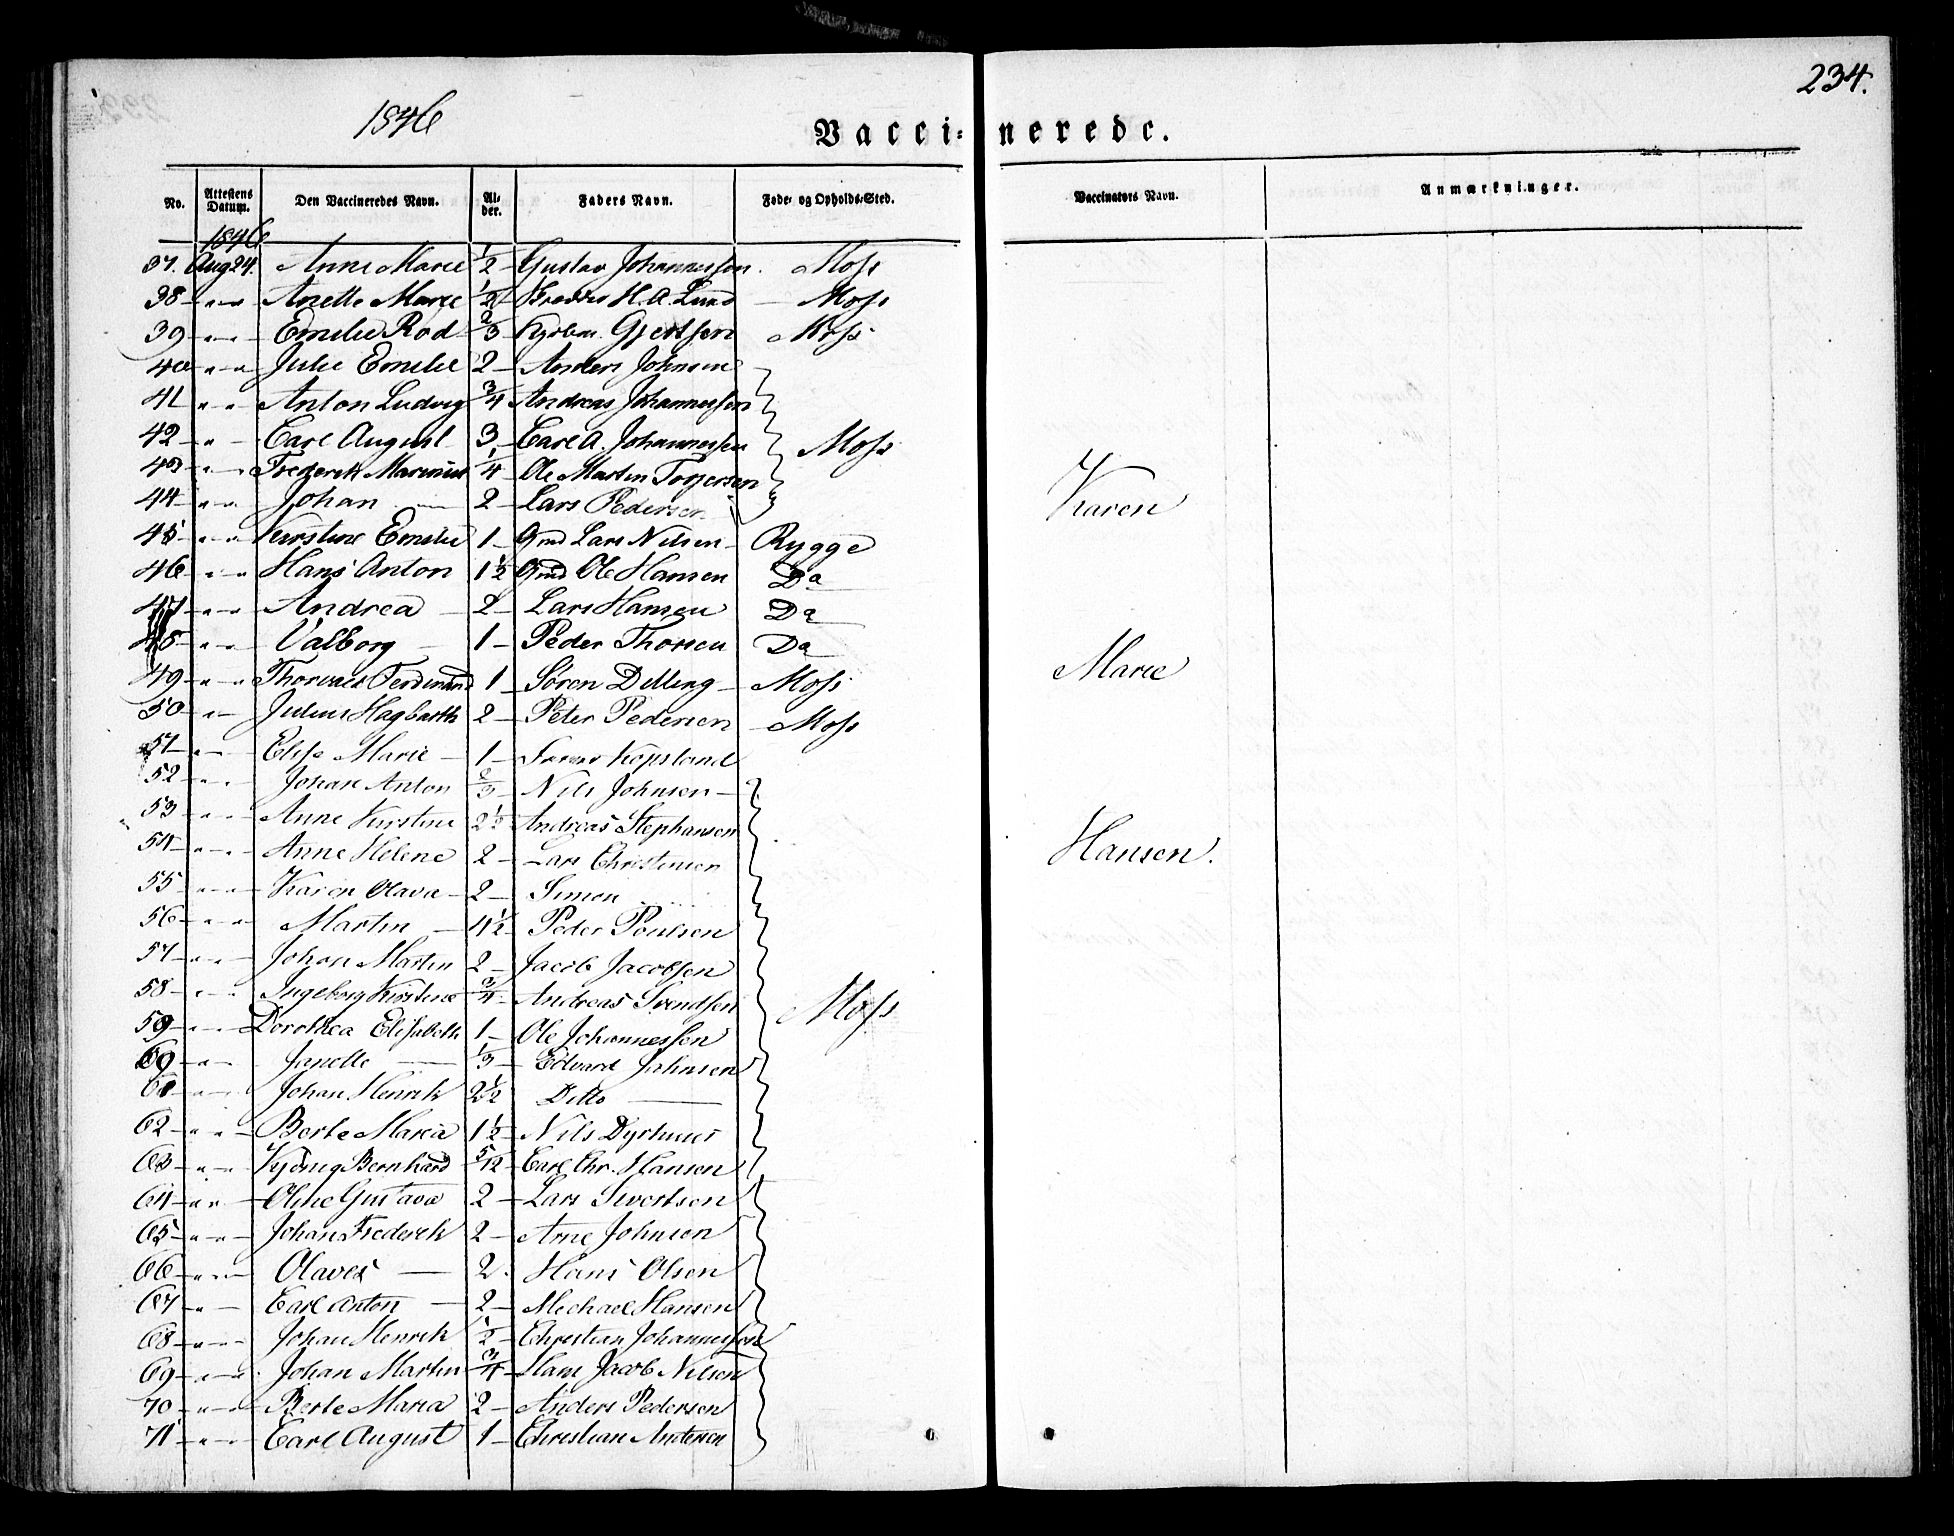 234.
1846
Vaccinerede.
No. Attestens Datum. Den Vaccineredes Navn. Alder. Faders Navn. Føde- og Opholds-Sted. Vaccinators Navn. Anmærkninger.
1846
37. Aug 24. Anne Marie 1/2 Gustav Johannessen Moss
38 " " Anette Marie 1/2 H. A. Lund Moss
39 " " Emilie Rød 2/3 Gjertsen Moss
40 " " Julie Emilie 2 Anders Johnsen
41 " " Anton Ludvig 3/4 Andreas Johannessen
42 " Carl August 3 Carl A. Johannessen Moss
43 " " Frederik Marinius 1/4 Ole Martin Torjersen
44 " " Johan 2 Lars Pedersen Karen
45 " " Kirstine Emilie 1 Gmd Lars Nilsen Rygge
46 " " Hans Anton 1 1/2 Gmd Ole Hansen Do
47 " " Andrea 2 Lars Hansen Do
48 " " Valborg 1 Peder Thorsen Do
49 " " Ferdinand 1 Søren Dilling Moss Marie
50 " Julius Hagbarth 2 Peter Pedersen Moss
51 " " Elise Marie 1
52 " " Johan Anton 2/3 Nils Johnsen
53 " " Anne Kirstine 2 1/2 Andreas Stephansen
54 " " Anne Helene 2 Lars Christensen Hansen.
55 " " Karen Olava 2 Simon
56 " " Martin 4 1/2 Peder Poulsen
57 " " Johan Martin 2 Jacob Jacobsen
58 " " Ingeborg Kirstine 3/4 Andreas Svendsen Moss
59 " " Dorothea Elisabeth 1 Ole Johannessen
60 " " Janette 1/3 Edvard Johnsen
61 " " Johan Henrik 2 1/2 Ditto
62 " " Berte Maria 1 1/2 Nils
63 " " Bernhard 5/12 Carl Chr. Hansen
64 " " Oline Gustava 2 Lars Sivertsen
65 " " Johan Frederik 2 Arne Johnsen
66 " " Olaves 2 Hans Olsen
67 " Carl Anton 2 Michael Hansen
68 " " Johan Henrik 1/2 Christian Johannessen
69 " " Johan Martin 3/4 Hans Jacob Nilsen
70 " " Berte Maria 2 Anders Pedersen
71 " " Carl August 1 Christian Andersen